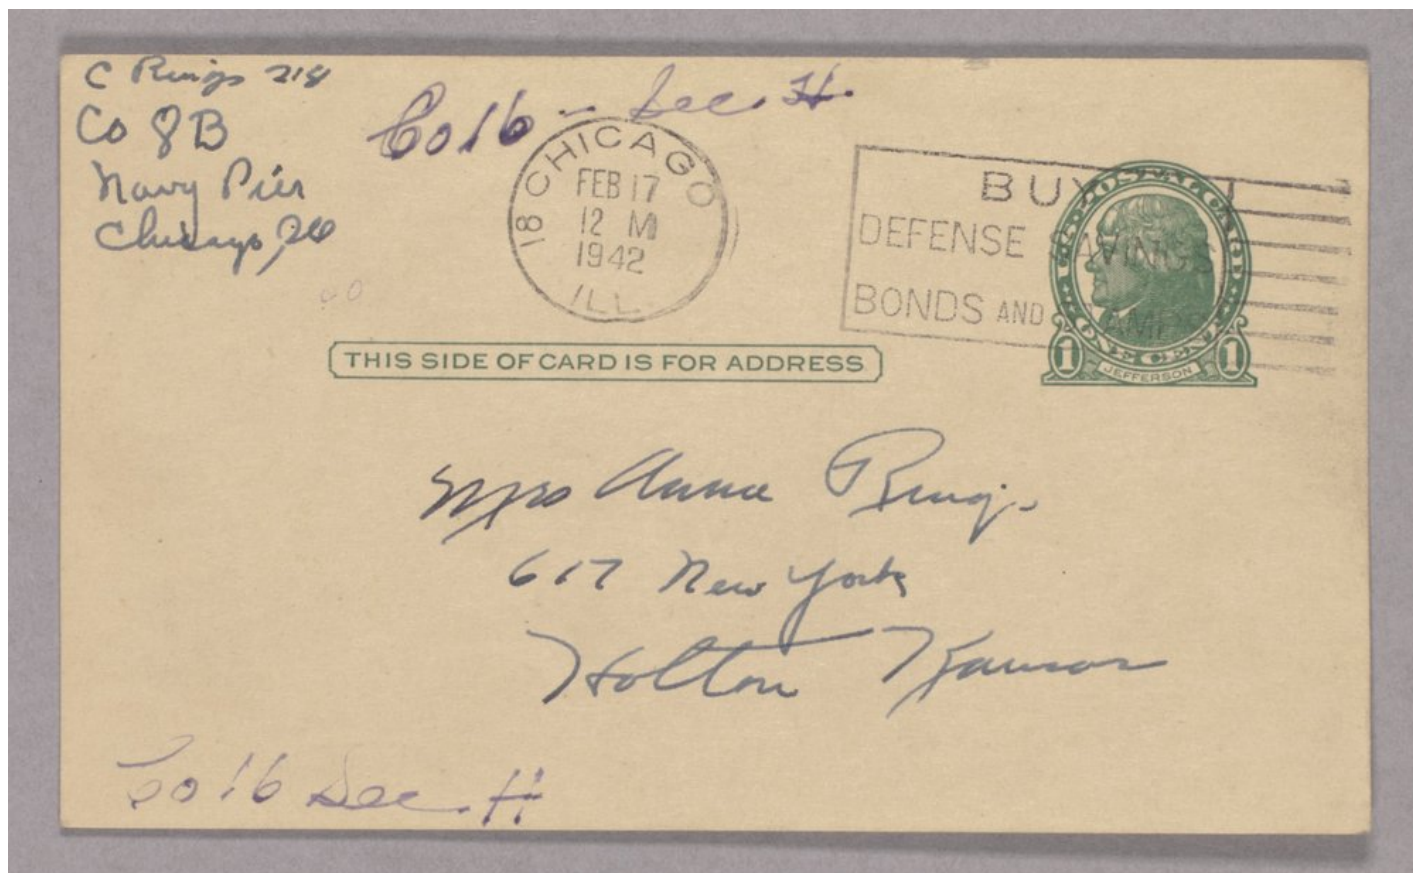 C Rings 218
Co 8 B
Navy Pier
Chicago, Ill
Co 16 - Sec. H.
18 CHICAGO
FEB 17
12 M
1942
ILL.
BUY
DEFENSE SAVINGS
BONDS AND STAMPS
U.S. POSTAL CARD
ONE CENT
1 JEFFERSON 1
THIS SIDE OF CARD IS FOR ADDRESS
Mrs Anna Rings
617 New York
Holton Kansas
Co 16 Sec. H